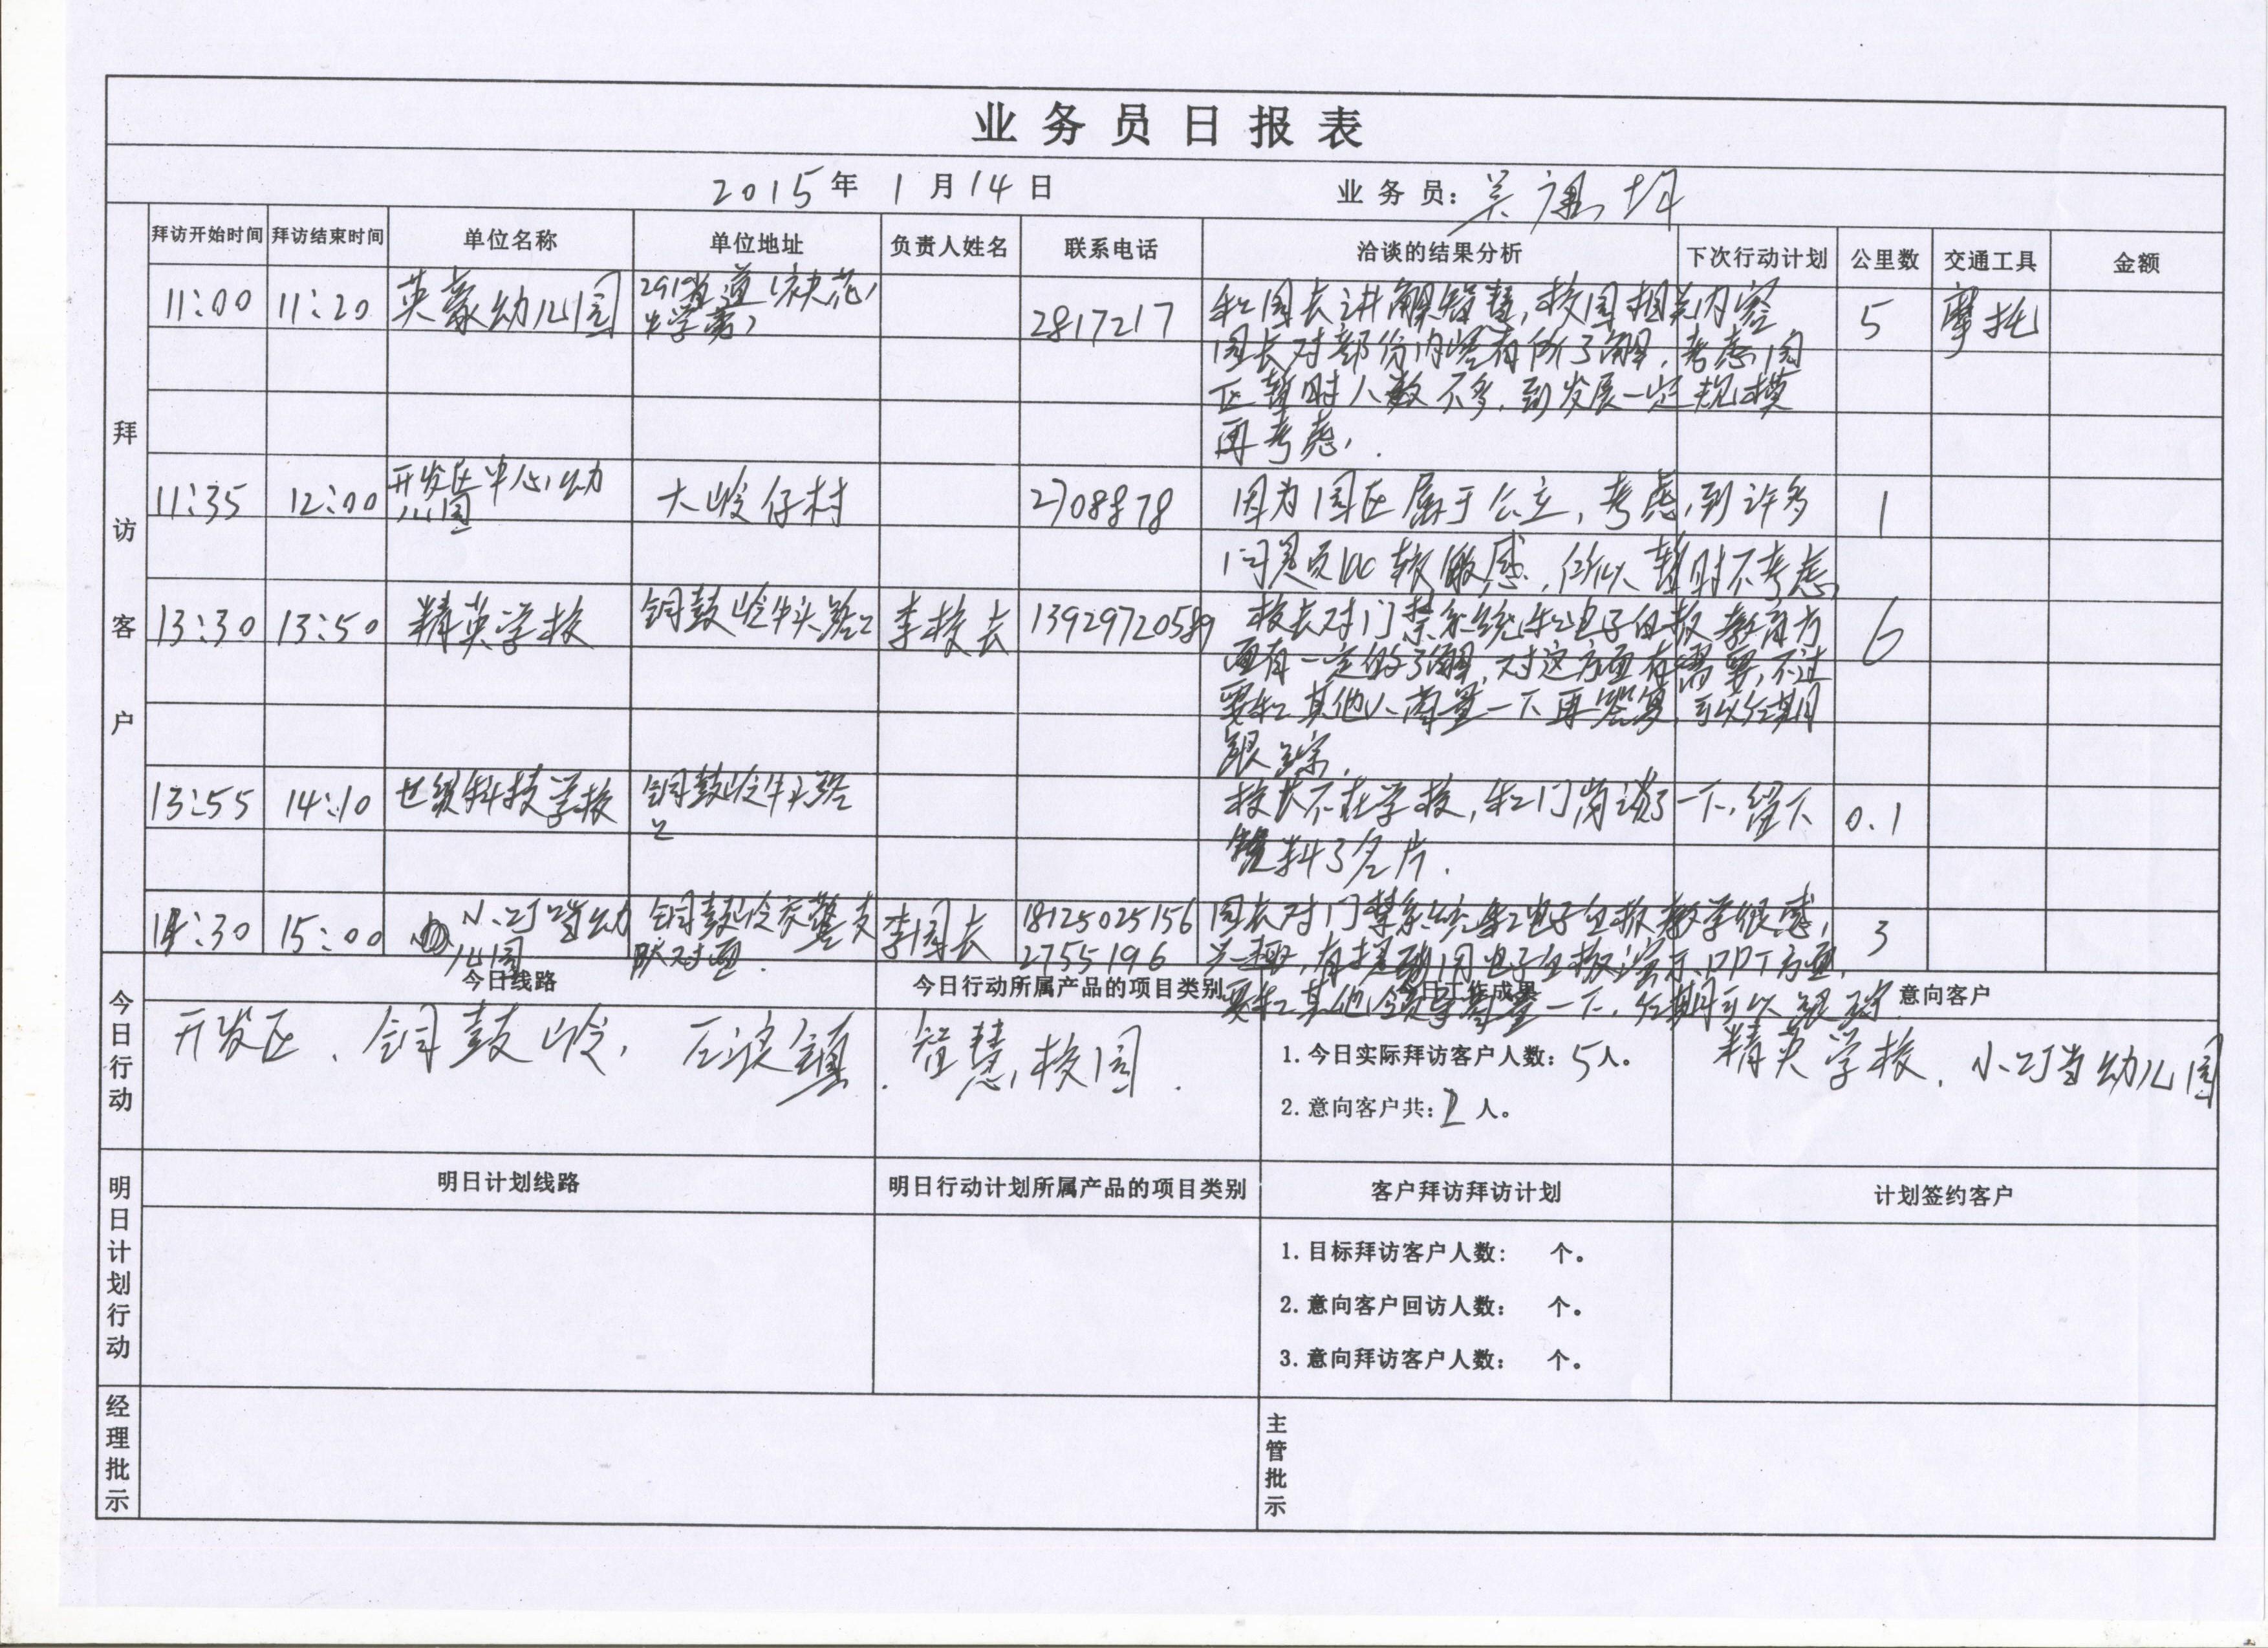 业务员日报表
2015年 1月14日 业务员: 吴
拜访客户
拜访开始时间 拜访结束时间 单位名称 单位地址 负责人姓名 联系电话 洽谈的结果分析 下次行动计划 公里数 交通工具 金额
11:00 11:20 英豪幼儿园 291省道(袂花 2817217 和园长讲解智慧,校园相关内容 5 摩托
中学旁)
园长对部份内容有所了解,考虑园
区暂时人数不多,到发展一定规模
再考虑,.
11:35 12:00 开发区中心幼 大岭仔村 2708878 因为园区属于公立,考虑,到许多 1
儿园
较敏感,所以暂时不考虑,
13:30 13:50 精英学校 铜鼓岭牛头路口 李校长 13929720589 校长对门禁系统和电子白板教育方 6
面有一定的了解,对这方面有需要,不过
要和其他人商量一下再答复,可以后期
跟踪,
13:55 14:10 世纪科技学校 铜鼓岭牛头路 校长不在学校,和门岗谈了一下,留下 0.1
口
资料了名片.
14:30 15:00 小叮当幼 铜鼓岭交警支 李园长 18125025156 园长对门禁系统和电子白板教学很感, 3
儿园 队对面. 2755196 兴趣,有提到用电子白板演示PPT方面,
要和其他领导商量一下,后期可以跟踪.
今日行动
今日线路 今日行动所属产品的项目类别 今日工作成果 意向客户
开发区、铜鼓岭, 石浪镇. 智慧,校园. 1.今日实际拜访客户人数: 5人。 精英学校、小叮当幼儿园
2.意向客户共: 2人。
明日计划行动
明日计划线路 明日行动计划所属产品的项目类别 客户拜访拜访计划 计划签约客户
1.目标拜访客户人数: 个。
2.意向客户回访人数: 个。
3.意向拜访客户人数: 个。
经理批示 主管批示